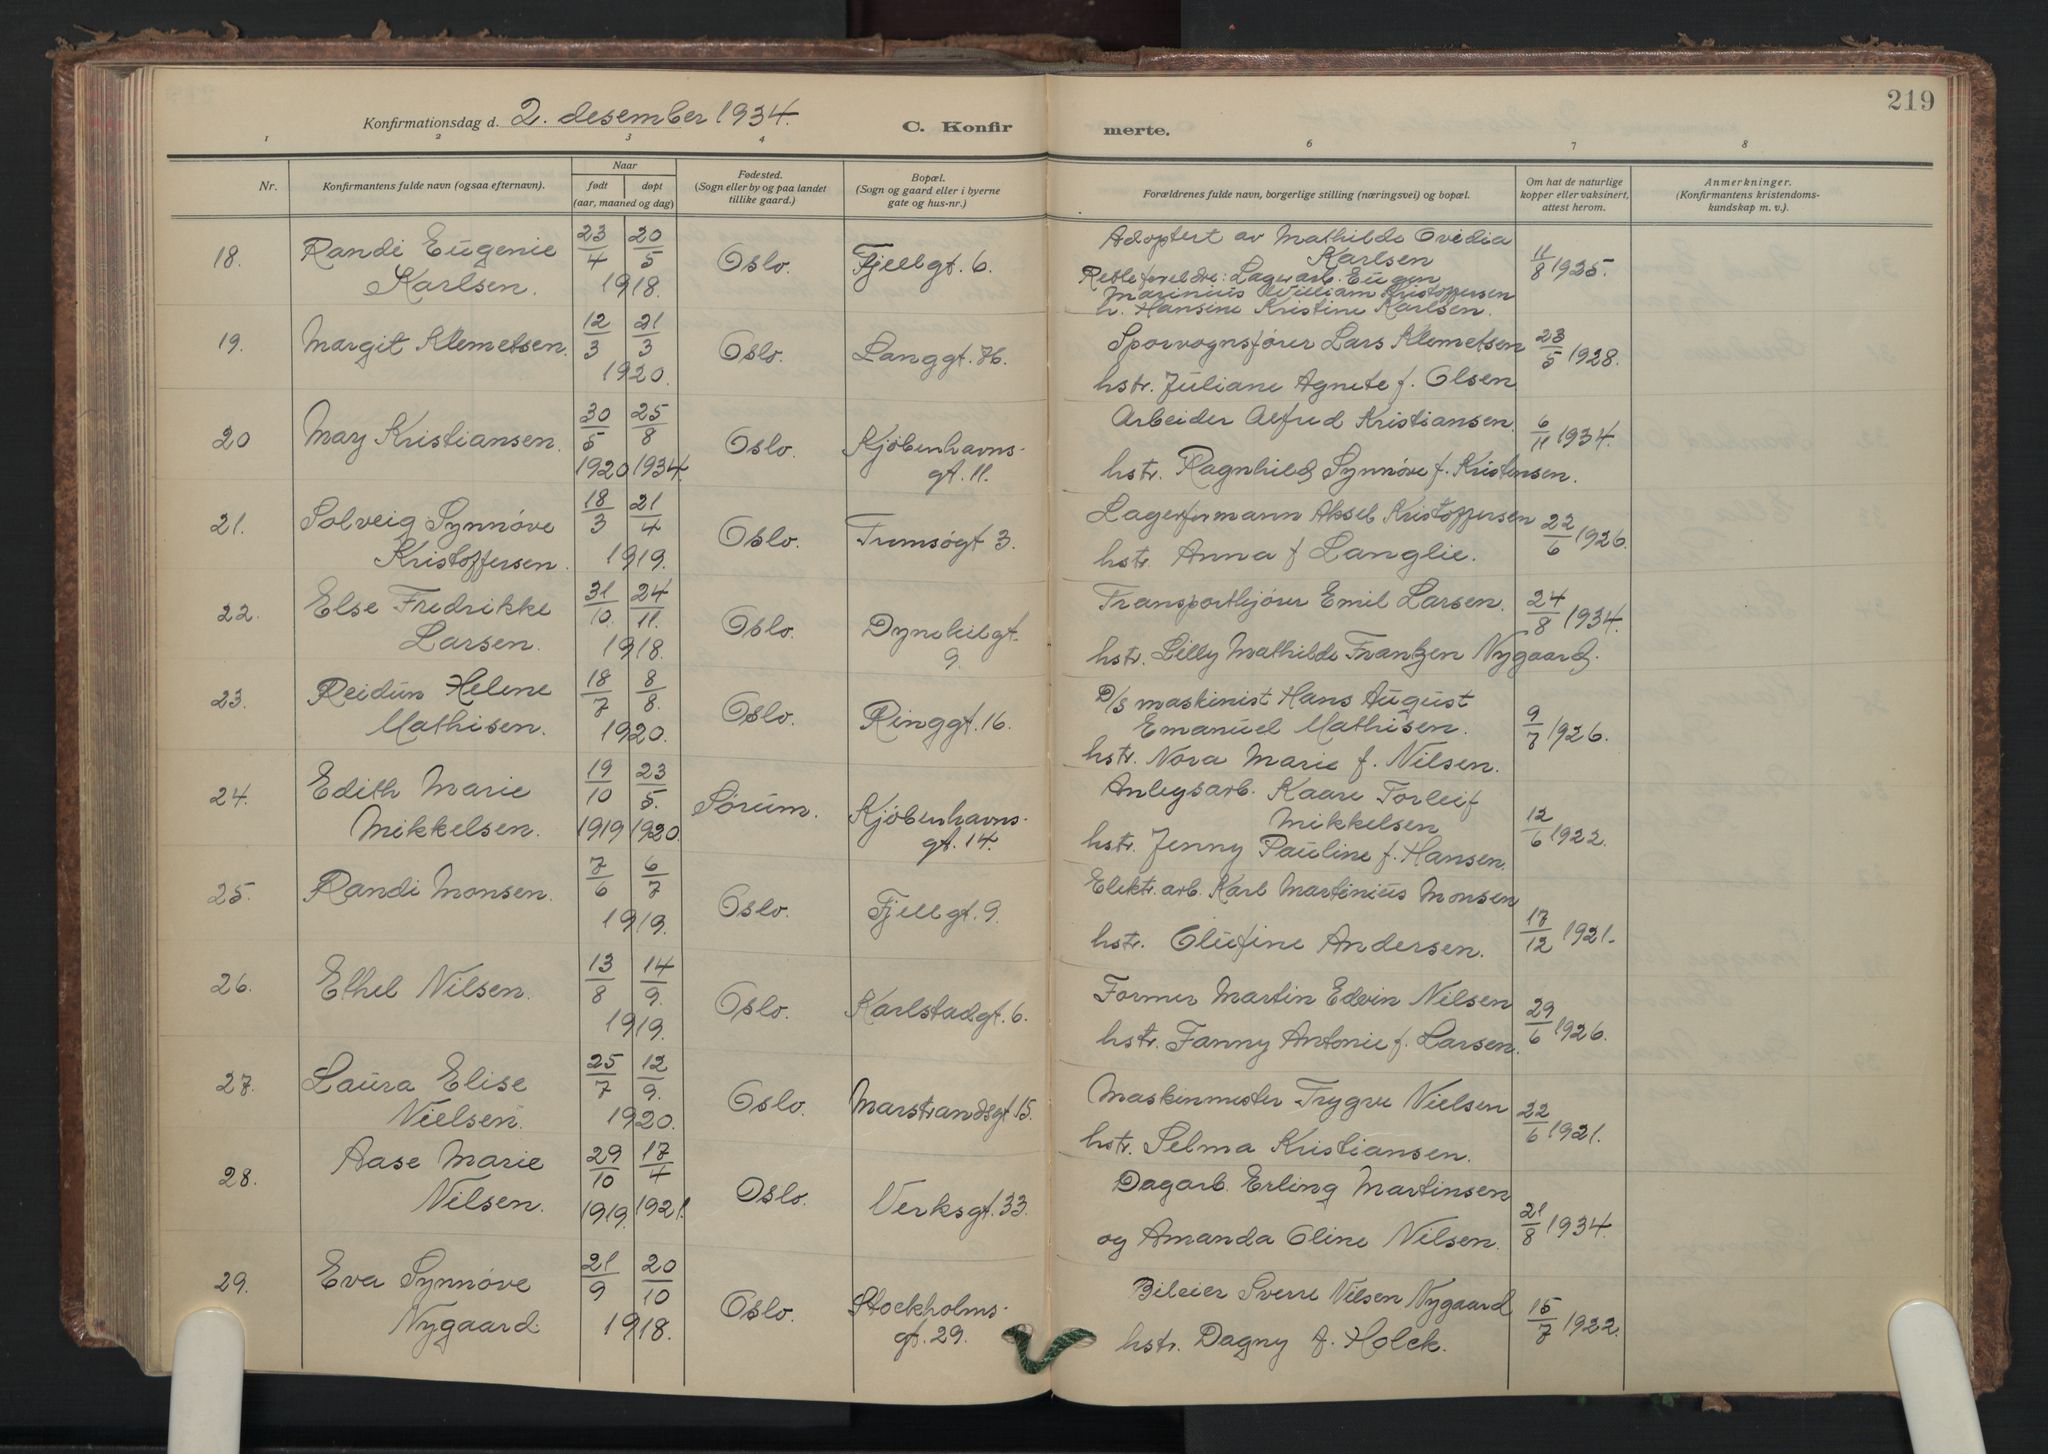 219
Konfirmationsdag d. 2. desember 1934.
C. Konfirmerte.
1 2 3 4 6 7 8
Nr.
Konfirmantens fulde navn (ogsaa efternavn).
Naar
født døpt
(aar, maaned og dag)
Fødested.
(Sogn eller by og paa landet
tillike gaard.)
Bopæl.
(Sogn og gaard eller i byerne
gate og hus-nr.)
Forældrenes fulde navn, borgerlige stilling (næringsvei) og bopæl.
Om hat de naturlige
kopper eller vaksinert,
attest herom.
Anmerkninger.
(Konfirmantens kristendoms-
kundskap m. v.).
18. Randi Eugenie
Karlsen.
23/4 20/5
1918.
Oslo.
Fjellgt. 6.
Adoptert av Mathilde Ovedia
Karlsen
Rette foreldre: Lagerarb. Eugen
Marinius William Kristoffersen
h. Hansine Kristine Karlsen.
11/8 1925.
19. Margit Klemetsen.
12/3 21/3
1920.
Oslo.
Langgt. 76.
Sporvognsfører Lars Klemetsen
hstr. Juliane Agnete f. Olsen
23/5 1928.
20 May Kristiansen.
30/5 25/8
1920 1934.
Oslo.
Kjøbenhavns-
gt. 11.
Arbeider Alfred Kristiansen.
hstr. Ragnhild Synnøve f. Kristensen.
6/11 1934.
21. Solveig Synnøve
Kristoffersen.
18/3 21/4
1919.
Oslo.
Tromsøgt 3.
Lagerformann Aksel Kristoffersen
hstr. Anna f Langlie.
22/6 1926.
22. Else Fredrikke
Larsen.
31/10. 24/11.
1918.
Oslo.
Dynekilgt.
9.
Transportkjører Emil Larsen.
hstr. Lilly Mathilde Frantzen Nygaard.
24/8 1934.
23. Reidun Helene
Mathisen.
18/7 8/8.
1920.
Oslo.
Ringgt. 16.
D/s maskinist Hans August
Emanuel Mathisen.
hstr. Nora Marie f. Nilsen.
9/7 1926.
24. Edith Marie
Mikkelsen.
19/10 23/5.
1919 1920.
Sørum.
Kjøbenhavns-
gt. 14.
Anlegsarb. Kaare Torleif
Mikkelsen
hstr. Jenny Pauline f. Hansen.
12/6 1922.
25. Randi Monsen.
7/6 6/7
1919.
Oslo.
Fjellgt. 9.
Elektr. arb. Karl Martinius Monsen
hstr. Olufine Andersen.
17/12 1921.
26. Ethel Nilsen.
13/8 14/9.
1919.
Oslo.
Karlstadgt. 6.
Former Martin Edvin Nilsen
hstr. Fanny Antonie f. Larsen.
29/6 1926.
27. Laura Elise
Nielsen.
25/7 12/9.
1920.
Oslo.
Marstrandsgt. 15.
Maskinmester Trygve Nielsen
hstr. Selma Kristiansen.
22/6 1921.
28. Aase Marie
Nilsen.
29/10 17/4
1919. 1921.
Oslo.
Verksgt. 33.
Dagarb. Erling Martinsen
og Amanda Oline Nilsen.
21/8 1934.
29. Eva Synnøve
Nygaard.
21/9 20/10
1918.
Oslo.
Stockholms-
gt. 29.
Bileier Sverre Nilsen Nygaard
hstr. Dagny f. Holck.
15/7 1922.